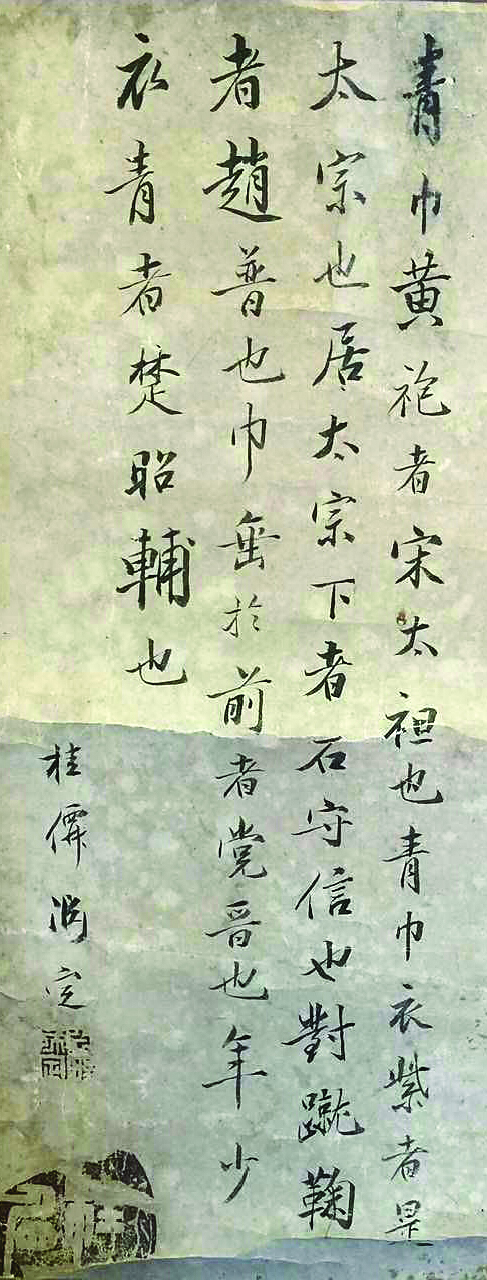 青巾黃袍者宋太祖也青巾衣紫者是
太宗也居太宗下者石守信也對蹴鞠
者趙普也巾垂於前者党晋也年少
衣青者楚昭輔也
桂